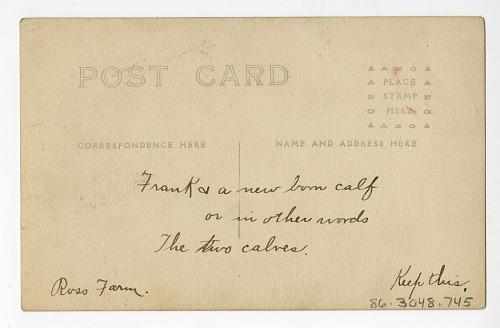 POST CARD
A AZO A
A PLACE A
Z STAMP Z
O HERE O
A AZO A
CORRESPONDENCE HERE
NAME AND ADDRESS HERE
Frank & a new born calf
or in other words
The two calves.
Ross Farm.
Keep this.
86.3048.745